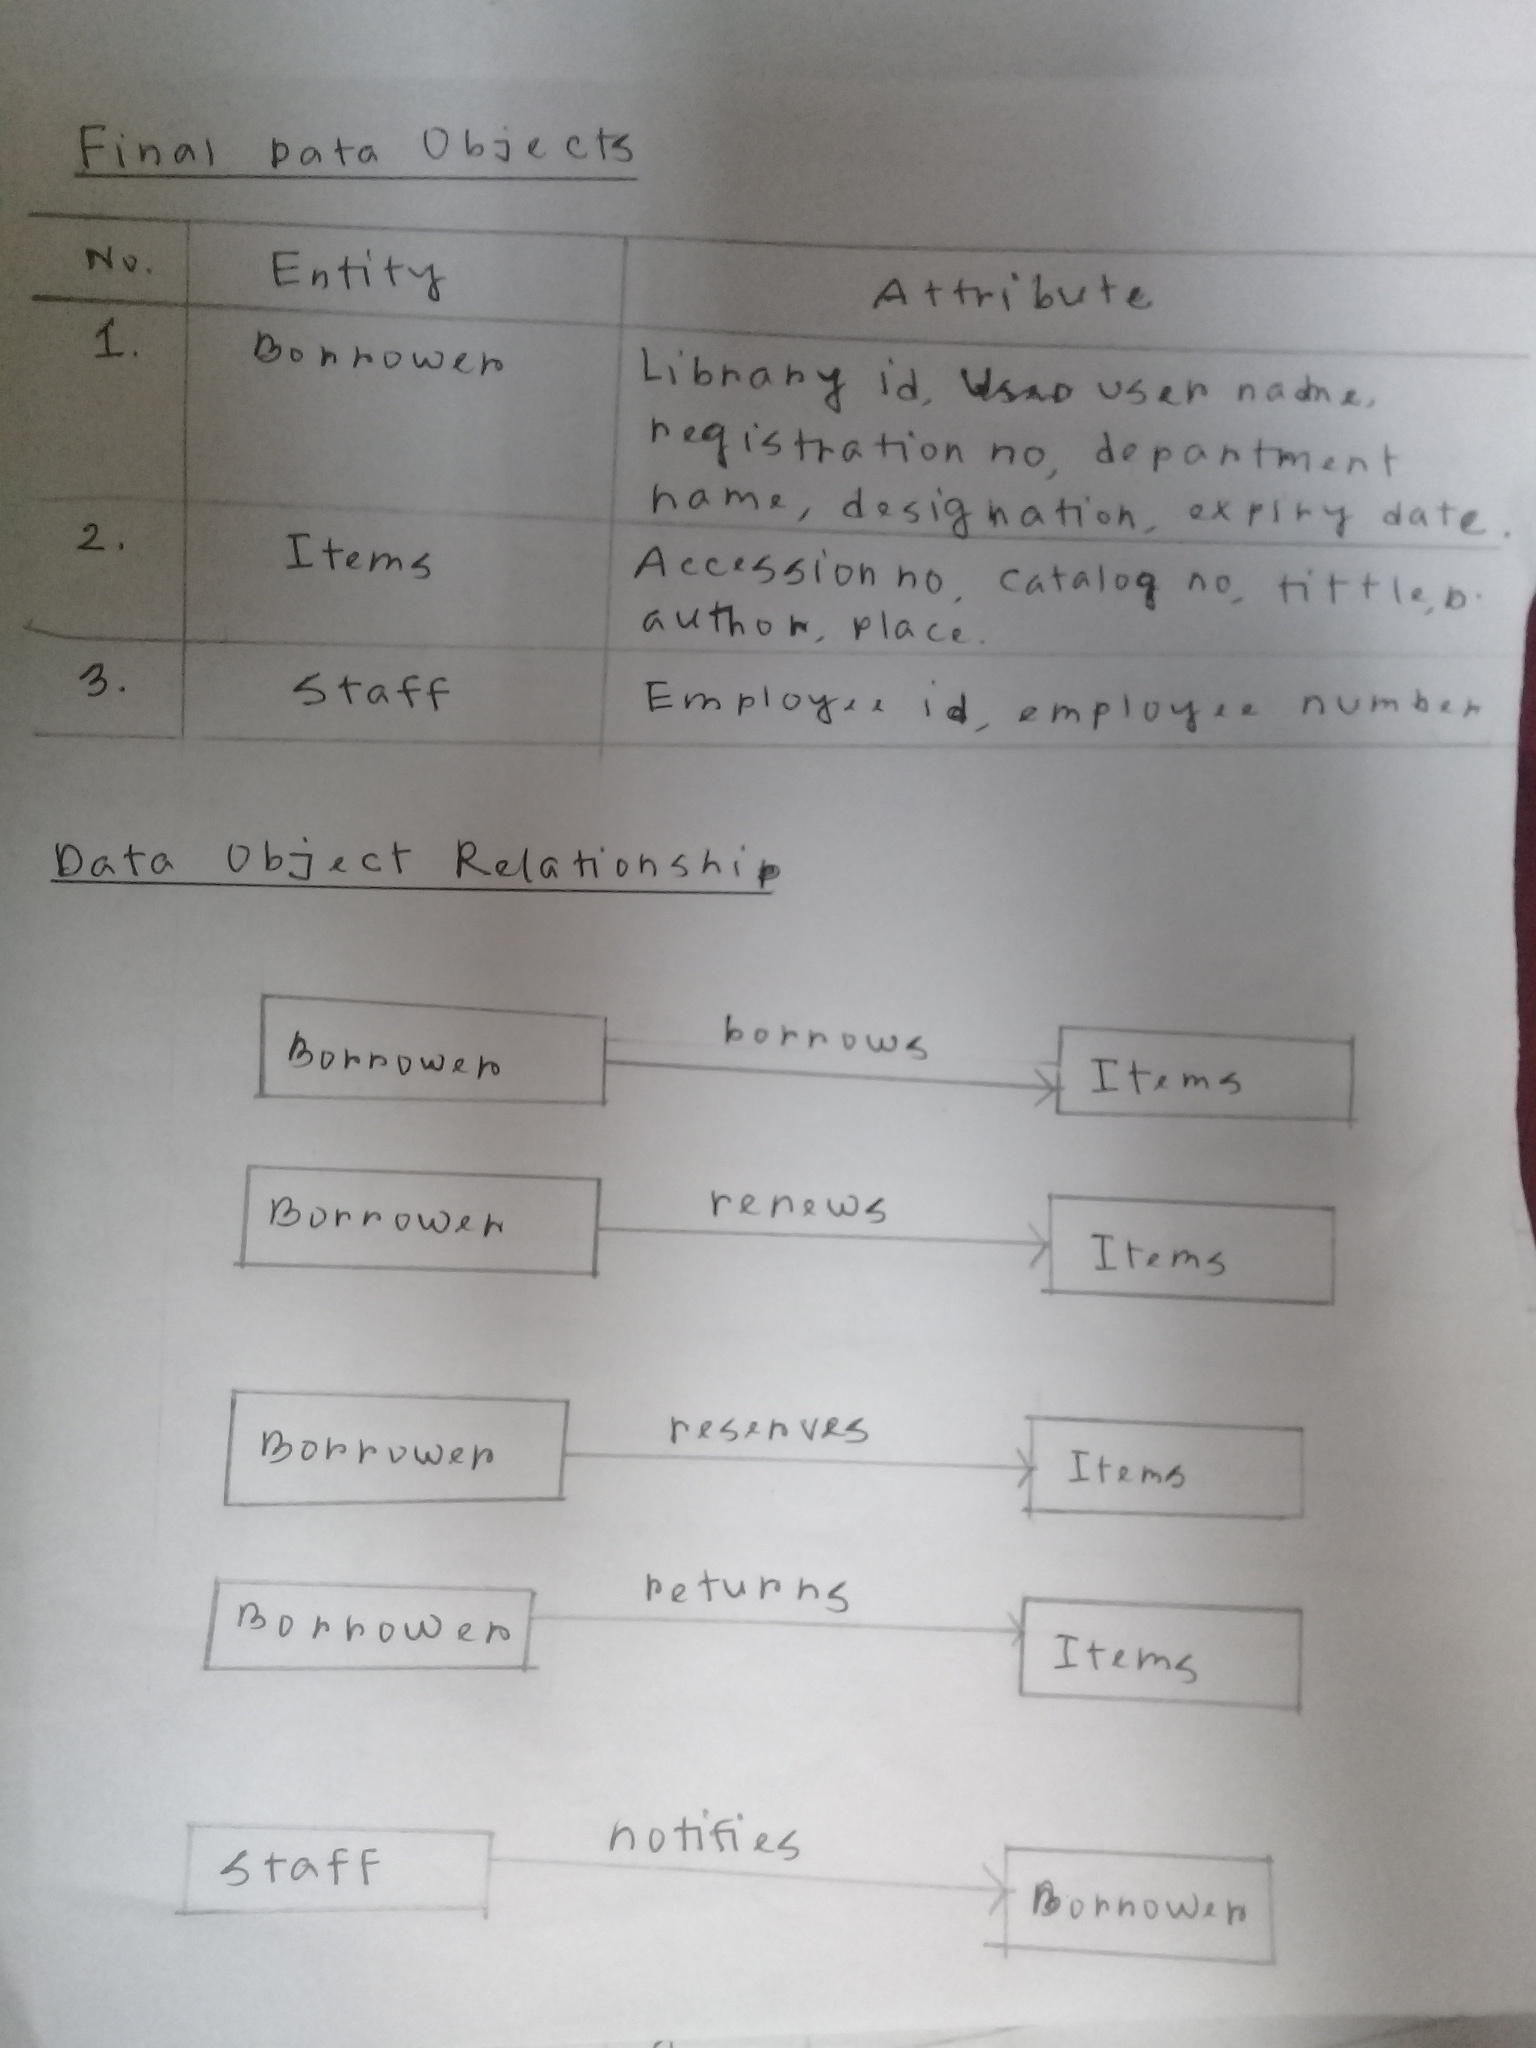 Final Data Objects
No. Entity Attribute
1. Borrower Library id, user name,
registration no, department
name, designation, expiry date.
2. Items Accession no, catalog no, tittle,
author, place.
3. Staff Employee id, employee number
Data Object Relationship
Borrower borrows Items
Borrower renews Items
Borrower reserves Items
Borrower returns Items
Staff notifies Borrower